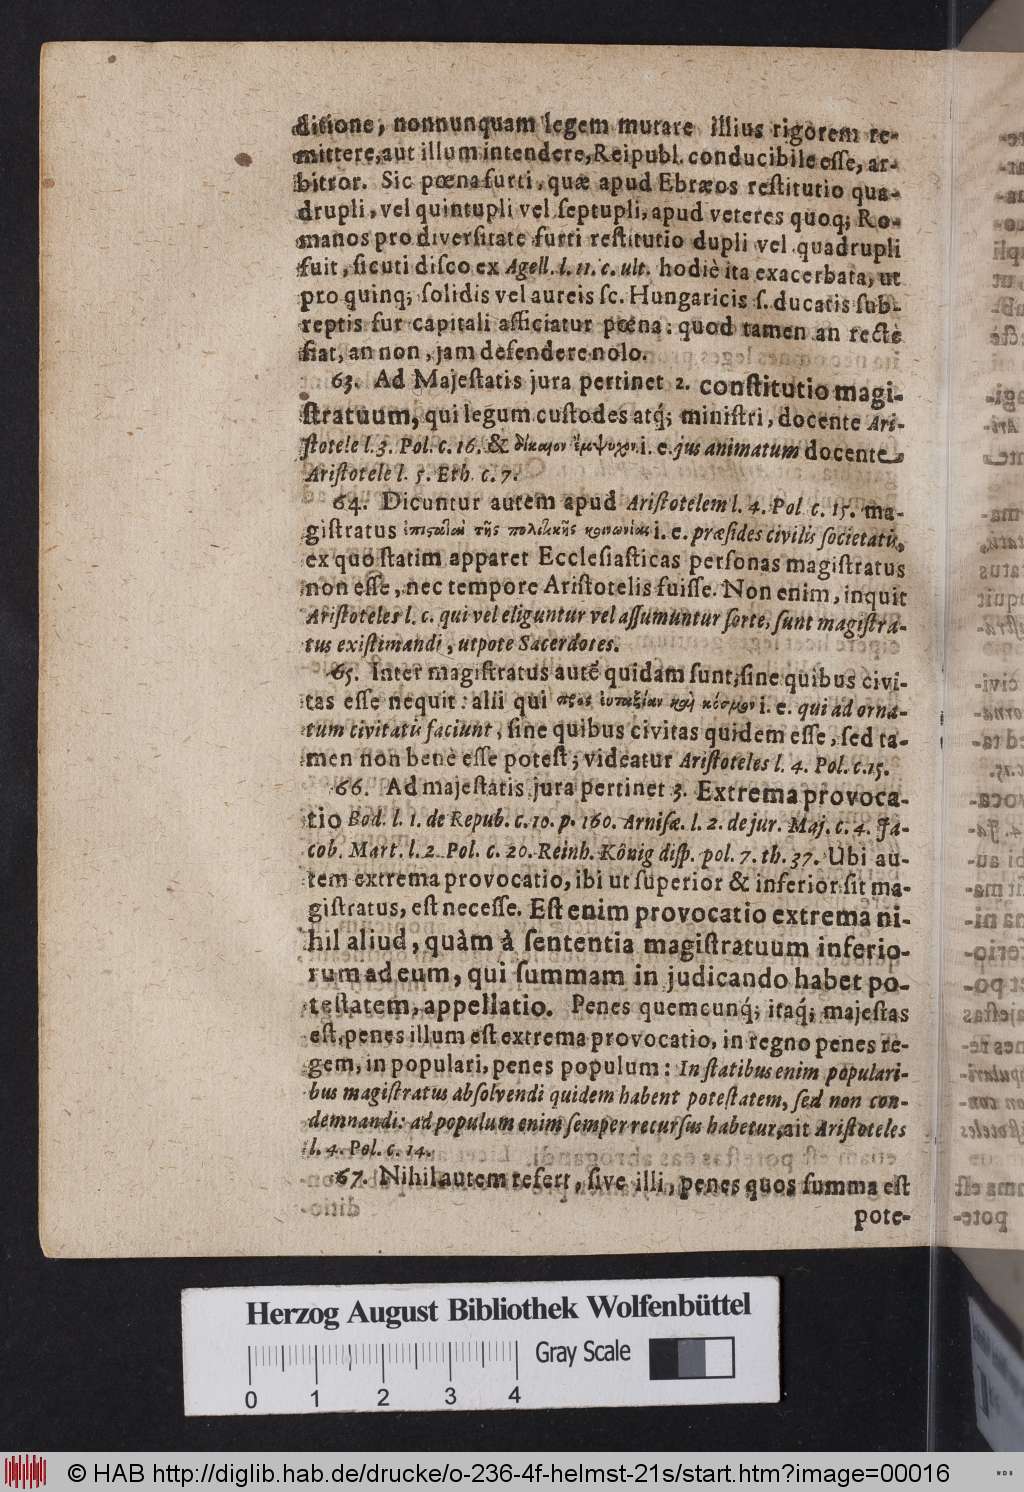 ditione, nonnunquam legem mutare illius rigorem re-
mittere, aut illum intendere, Reipubl. conducibile esse, ar-
bitror. Sic pœna furti, quæ apud Ebræos restitutio qua-
drupli, vel quintupli vel septupli, apud veteres quoq; Ro-
manos pro diversitate furti restitutio dupli vel quadrupli
fuit, sicuti disco ex Agell. l. 11. c. ult. hodiè ita exacerbata, ut
pro quinq; solidis vel aureis sc. Hungaricis s. ducatis sub-
reptis fur capitali afficiatur pœna: quod tamen an rectè
fiat, an non, jam defendere nolo.
63. Ad Majestatis jura pertinet 2. constitutio magi-
stratuum, qui legum custodes atq́; ministri, docente Ari-
stotele l. 3. Pol. c. 16. & δίκαιον ἔμψυχον i. e. jus animatum docente
Aristotele l. 5. Eth. c. 7.
64. Dicuntur autem apud Aristotelem l. 4. Pol c. 15. ma-
gistratus ἐπιςάται τῆς πολιτικῆς κοινωνίας i. e. præsides civilis societatis,
ex quo statim apparet Ecclesiasticas personas magistratus
non esse, nec tempore Aristotelis fuisse. Non enim, inquit
Aristoteles l. c. qui vel eliguntur vel assumuntur sorte, sunt magistra-
tus existimandi, utpote Sacerdotes.
65. Inter magistratus autē quidam sunt, sine quibus civi-
tas esse nequit: alii qui πρὸς ἐυταξίαν καὶ κόσμον i. e. qui ad orna-
tum civitatis faciunt, sine quibus civitas quidem esse, sed ta-
men non benè esse potest; videatur Aristoteles l. 4. Pol. c. 15.
66. Ad majestatis jura pertinet 3. Extrema provoca-
tio Bod. l. 1. de Repub. c. 10. p. 160. Arnisæ. l. 2. de jur. Maj. c. 4. Ja-
cob. Mart. l. 2 Pol. c. 20. Reinh. König disp. pol. 7. th. 37. Ubi au-
tem extrema provocatio, ibi ut superior & inferior sit ma-
gistratus, est necesse. Est enim provocatio extrema ni-
hil aliud, quàm à sententia magistratuum inferio-
rum ad eum, qui summam in judicando habet po-
testatem, appellatio. Penes quemcunq́; itaq́; majestas
est, penes illum est extrema provocatio, in regno penes re-
gem, in populari, penes populum: In statibus enim populari-
bus magistratus absolvendi quidem habent potestatem, sed non con-
demnandi: ad populum enim semper recursus habetur, ait Aristoteles
l. 4. Pol. c. 14.
67. Nihil autem refert, sive illi, penes quos summa est
pote-
Herzog August Bibliothek Wolfenbüttel
0 1 2 3 4
Gray Scale
© HAB http://diglib.hab.de/drucke/o-236-4f-helmst-21s/start.htm?image=00016